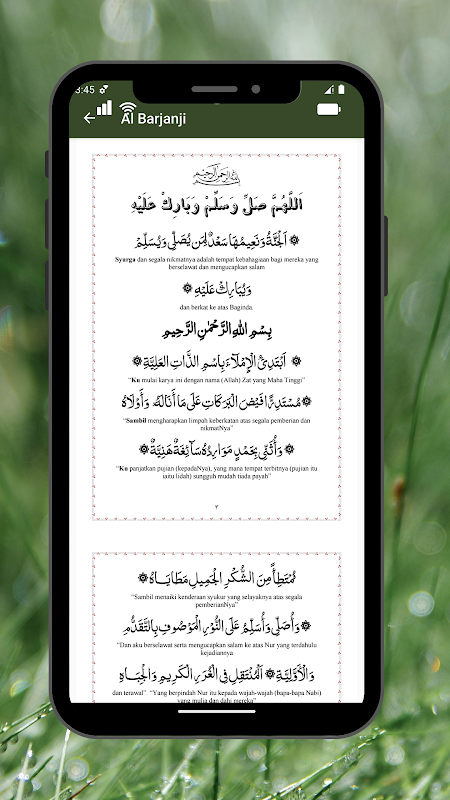 3:45
Al Barjanji
اَللّٰهُمَّ صَلِّ وَسَلِّمْ وَبَارِكْ عَلَيْهِ
اَلْجَنَّةُ وَنَعِيْمُهَا سَعْدٌ لِمَن يُصَلِّى وَيُسَلِّمْ
Syurga dan segala nikmatnya adalah tempat kebahagiaan bagi mereka yang
berselawat dan mengucapkan salam
وَيُبَارِكْ عَلَيْهِ
dan berkat ke atas Baginda.
بِسْمِ اللهِ الرَّحْمٰنِ الرَّحِيمِ
اَبْتَدِئُ الْإِمْلَاءَ بِاسْمِ الذَّاتِ الْعَلِيَّةِ
“Ku mulai karya ini dengan nama (Allah) Zat yang Maha Tinggi”
مُسْتَدِرًّا فَيْضَ الْبَرَكَاتِ عَلَى مَا أَنَالَهُ وَأَوْلَاهُ
“Sambil mengharapkan limpah keberkatan atas segala pemberian dan
nikmatNya”
وَأُثَنِّى بِحَمْدٍ مَوَارِدُهُ سَآئِغَةٌ هَنِيَّةٌ
“Ku panjatkan pujian (kepadaNya), yang mana tempat terbitnya (pujian itu
iaitu lidah) sungguh mudah tiada payah”
٢
مُمْتَطِأً مِنَ الشُّكْرِ الْجَمِيلِ مَطَايَاهُ
“Sambil menaiki kenderaan syukur yang selayaknya atas segala
pemberianNya”
وَأُصَلِّى وَأُسَلِّمُ عَلَى النُّوْرِ الْمَوْصُوفِ بِالتَّقَدُّمِ
“Dan aku berselawat serta mengucapkan salam ke atas Nur yang terdahulu
kejadiannya
وَالْأَوَّلِيَّةِ اَلْمُنْتَقِلِ فِى الْغُرَرِ الْكَرِيمَةِ وَالْجِبَاهِ
dan terawal”. “Yang berpindah Nur itu kepada wajah-wajah (bapa-bapa Nabi)
yang mulia dan dahi mereka”